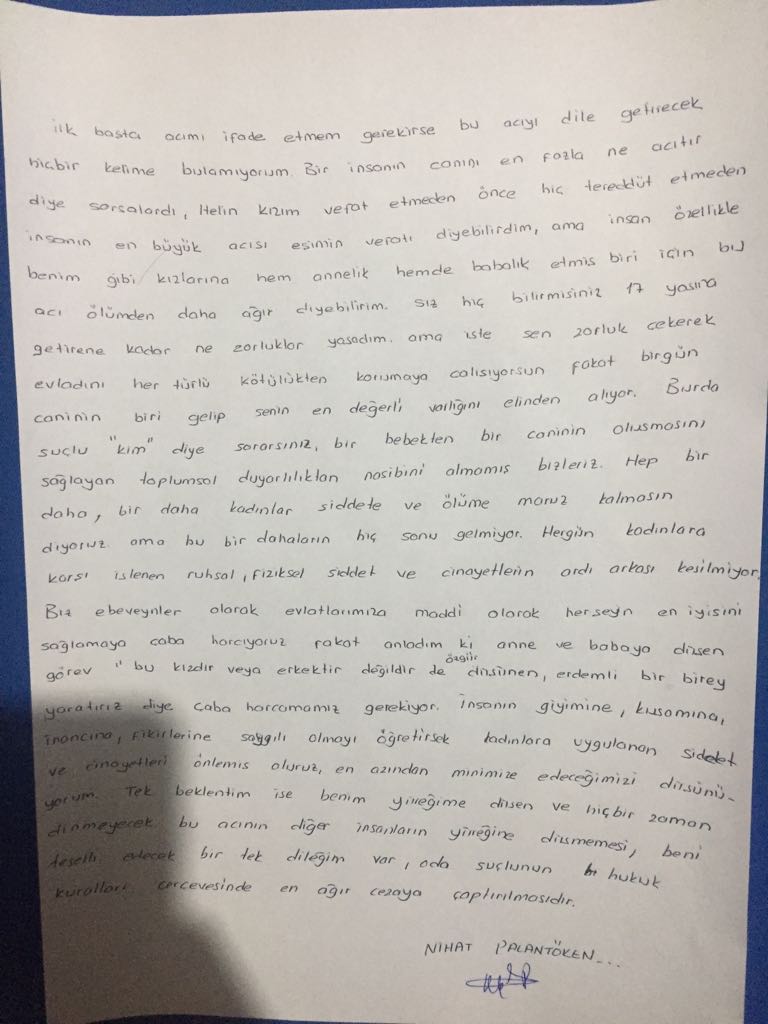 ilk başta acımı ifade etmem gerekirse bu acıyı dile getirecek
hiçbir kelime bulamıyorum. Bir insanın canını en fazla ne acıtır
diye sorsalardı, Helin kızım vefat etmeden önce hiç tereddüt etmeden
insanın en büyük acısı eşimin vefatı diyebilirdim, ama insan özellikle
benim gibi kızlarına hem annelik hemde babalık etmiş biri için bu
acı ölümden daha ağır diyebilirim. Siz hiç bilirmisiniz 17 yaşına
getirene kadar ne zorluklar yaşadım. ama işte sen zorluk çekerek
evladını her türlü kötülükten korumaya çalışıyorsun fakat birgün
caninin biri gelip senin en değerli varlığını elinden alıyor. Burda
suçlu "kim" diye sorarsınız, bir bebekten bir caninin oluşmasını
sağlayan toplumsal duyarlılıktan nasibini almamış bizleriz. Hep bir
daha, bir daha kadınlar şiddete ve ölüme maruz kalmasın
diyoruz ama bu bir dahaların hiç sonu gelmiyor. Hergün kadınlara
karşı işlenen ruhsal, fiziksel şiddet ve cinayetlerin ardı arkası kesilmiyor.
Biz ebeveynler olarak evlatlarımıza maddi olarak herşeyn en iyisini
sağlamaya çaba harcıyoruz fakat anladım ki anne ve babaya düşen
görev " bu kızdır veya erkektir değildir de özgür düşünen, erdemli bir birey
yaratırız diye çaba harcamamız gerekiyor. İnsanın giyimine, kuşamına,
inancına, fikirlerine saygılı olmayı öğretirsek kadınlara uygulanan şiddet
ve cinayetleri önlemiş oluruz, en azından minimize edeceğimizi düşünü-
yorum. Tek beklentim ise benim yüreğime düşen ve hiçbir zaman
dinmeyecek bu acının diğer insanların yüreğine düşmemesi, beni
teselli edecek bir tek dileğim var, oda suçlunun hukuk
kuralları çerçevesinde en ağır cezaya çaptırılmasıdır.
NİHAT PALANTÖKEN...